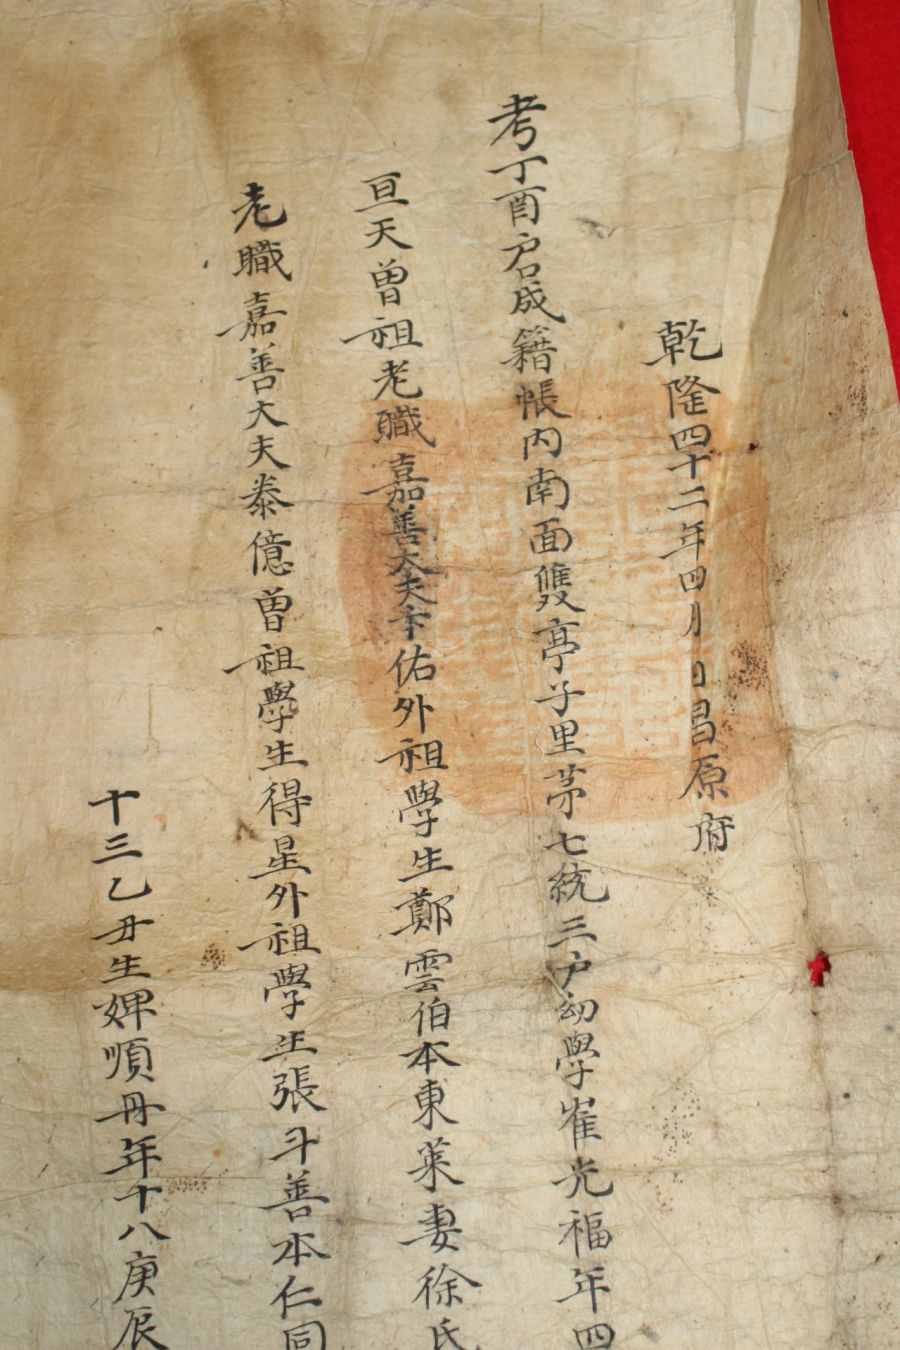 乾隆四十二年四月 日昌原府
考丁酉戶成籍帳內南面雙亭子里苐七統三戶幼學崔光福年四
亘天曾祖老職嘉善大夫卞佑外祖學生鄭雲伯本東萊妻徐氏
老職嘉善大夫泰億曾祖學生得星外祖學生張斗善本仁同
十三乙丑生婢順丹年十八庚辰